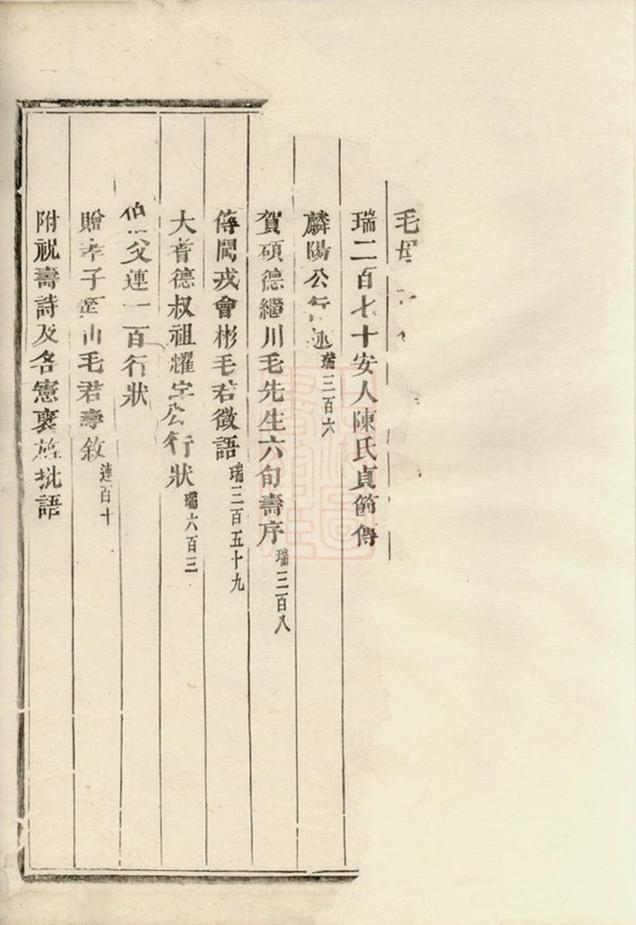 毛
瑞二百七十安人陳氏貞節傳
麟陽公行述瑞三百六
賀碩德繼川毛先生六旬壽序瑞三百八
傳聞戎會彬毛君徵語瑞三百五十九
大耆德叔祖耀宇公行狀瑞六百三
伯父連一百行狀
贈孝子奎山毛君壽敘連百十
附祝壽詩及各憲褒旌批語